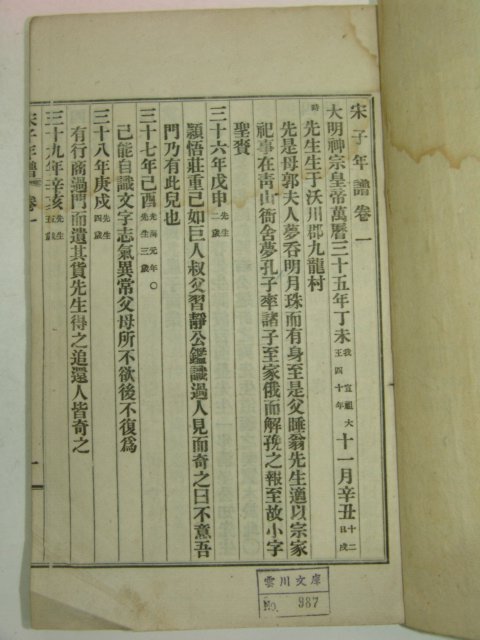 宋子年譜卷一
大明神宗皇帝萬曆三十五年丁未我宣祖大王四十年十一月辛丑十二日戌時
先生生于沃川郡九龍村
先是母郭夫人夢吞明月珠而有身至是父睡翁先生適以宗家
祀事在靑山衙舍夢孔子率諸子至家俄而解㝃之報至故小字
聖賚
三十六年戊申先生二歲
穎悟莊重已如巨人叔父習靜公鑑識過人見而奇之曰不意吾
門乃有此兒也
三十七年己酉光海元年○先生三歲
已能自識文字志氣異常父母所不欲後不復爲
三十八年庚戌先生四歲
有行商過門而遺其貨先生得之追還人皆奇之
三十九年辛亥先生五歲
宋子年譜 卷一 一
雲川文庫
No. 987